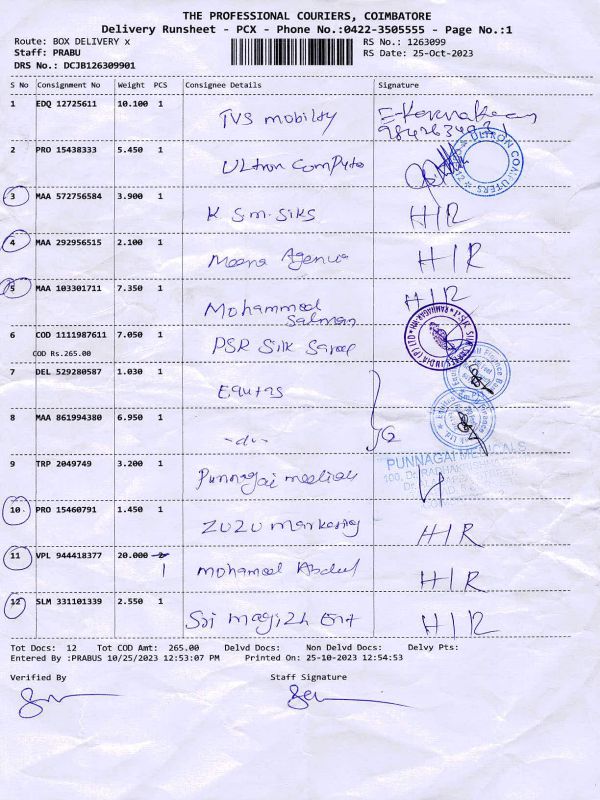 THE PROFESSIONAL COURIERS, COIMBATORE
Delivery Runsheet - PCX - Phone No.:0422-3505555 - Page No.:1
Route: BOX DELIVERY x RS No.: 1263099
Staff: PRABU RS Date: 25-Oct-2023
DRS No.: DCJB126309901
S No Consignment No Weight PCS Consignee Details Signature
1 EDQ 12725611 10.100 1 TVS mobility
2 PRO 15438333 5.450 1 ULtron Compute
ULTRON COMPUTERS
3 MAA 572756584 3.900 1 K S.m. Silks H/R
4 MAA 292956515 2.100 1 Meena Agencie H/R
5 MAA 103301711 7.350 1 Mohammed Salman H/R
6 COD 1111987611 7.050 1 PSR Silk Saree
COD Rs.265.00
7 DEL 529280587 1.030 1 Equtas
8 MAA 861994380 6.950 1 -do-
9 TRP 2049749 3.200 1 Punnagai medicals
PUNNAGAI MEDICALS
10 PRO 15460791 1.450 1 ZUZU marketing H/R
11 VPL 944418377 20.000 2 1 Mohamed Abdul H/R
12 SLM 331101339 2.550 1 Sri magizh Ent H/R
Tot Docs: 12 Tot COD Amt: 265.00 Delvd Docs: Non Delvd Docs: Delvy Pts:
Entered By :PRABUS 10/25/2023 12:53:07 PM Printed On: 25-10-2023 12:54:53
Verified By Staff Signature